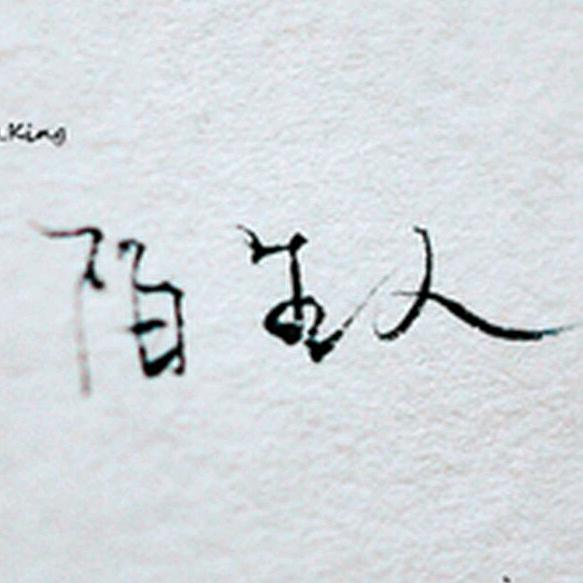 .King
陌生人